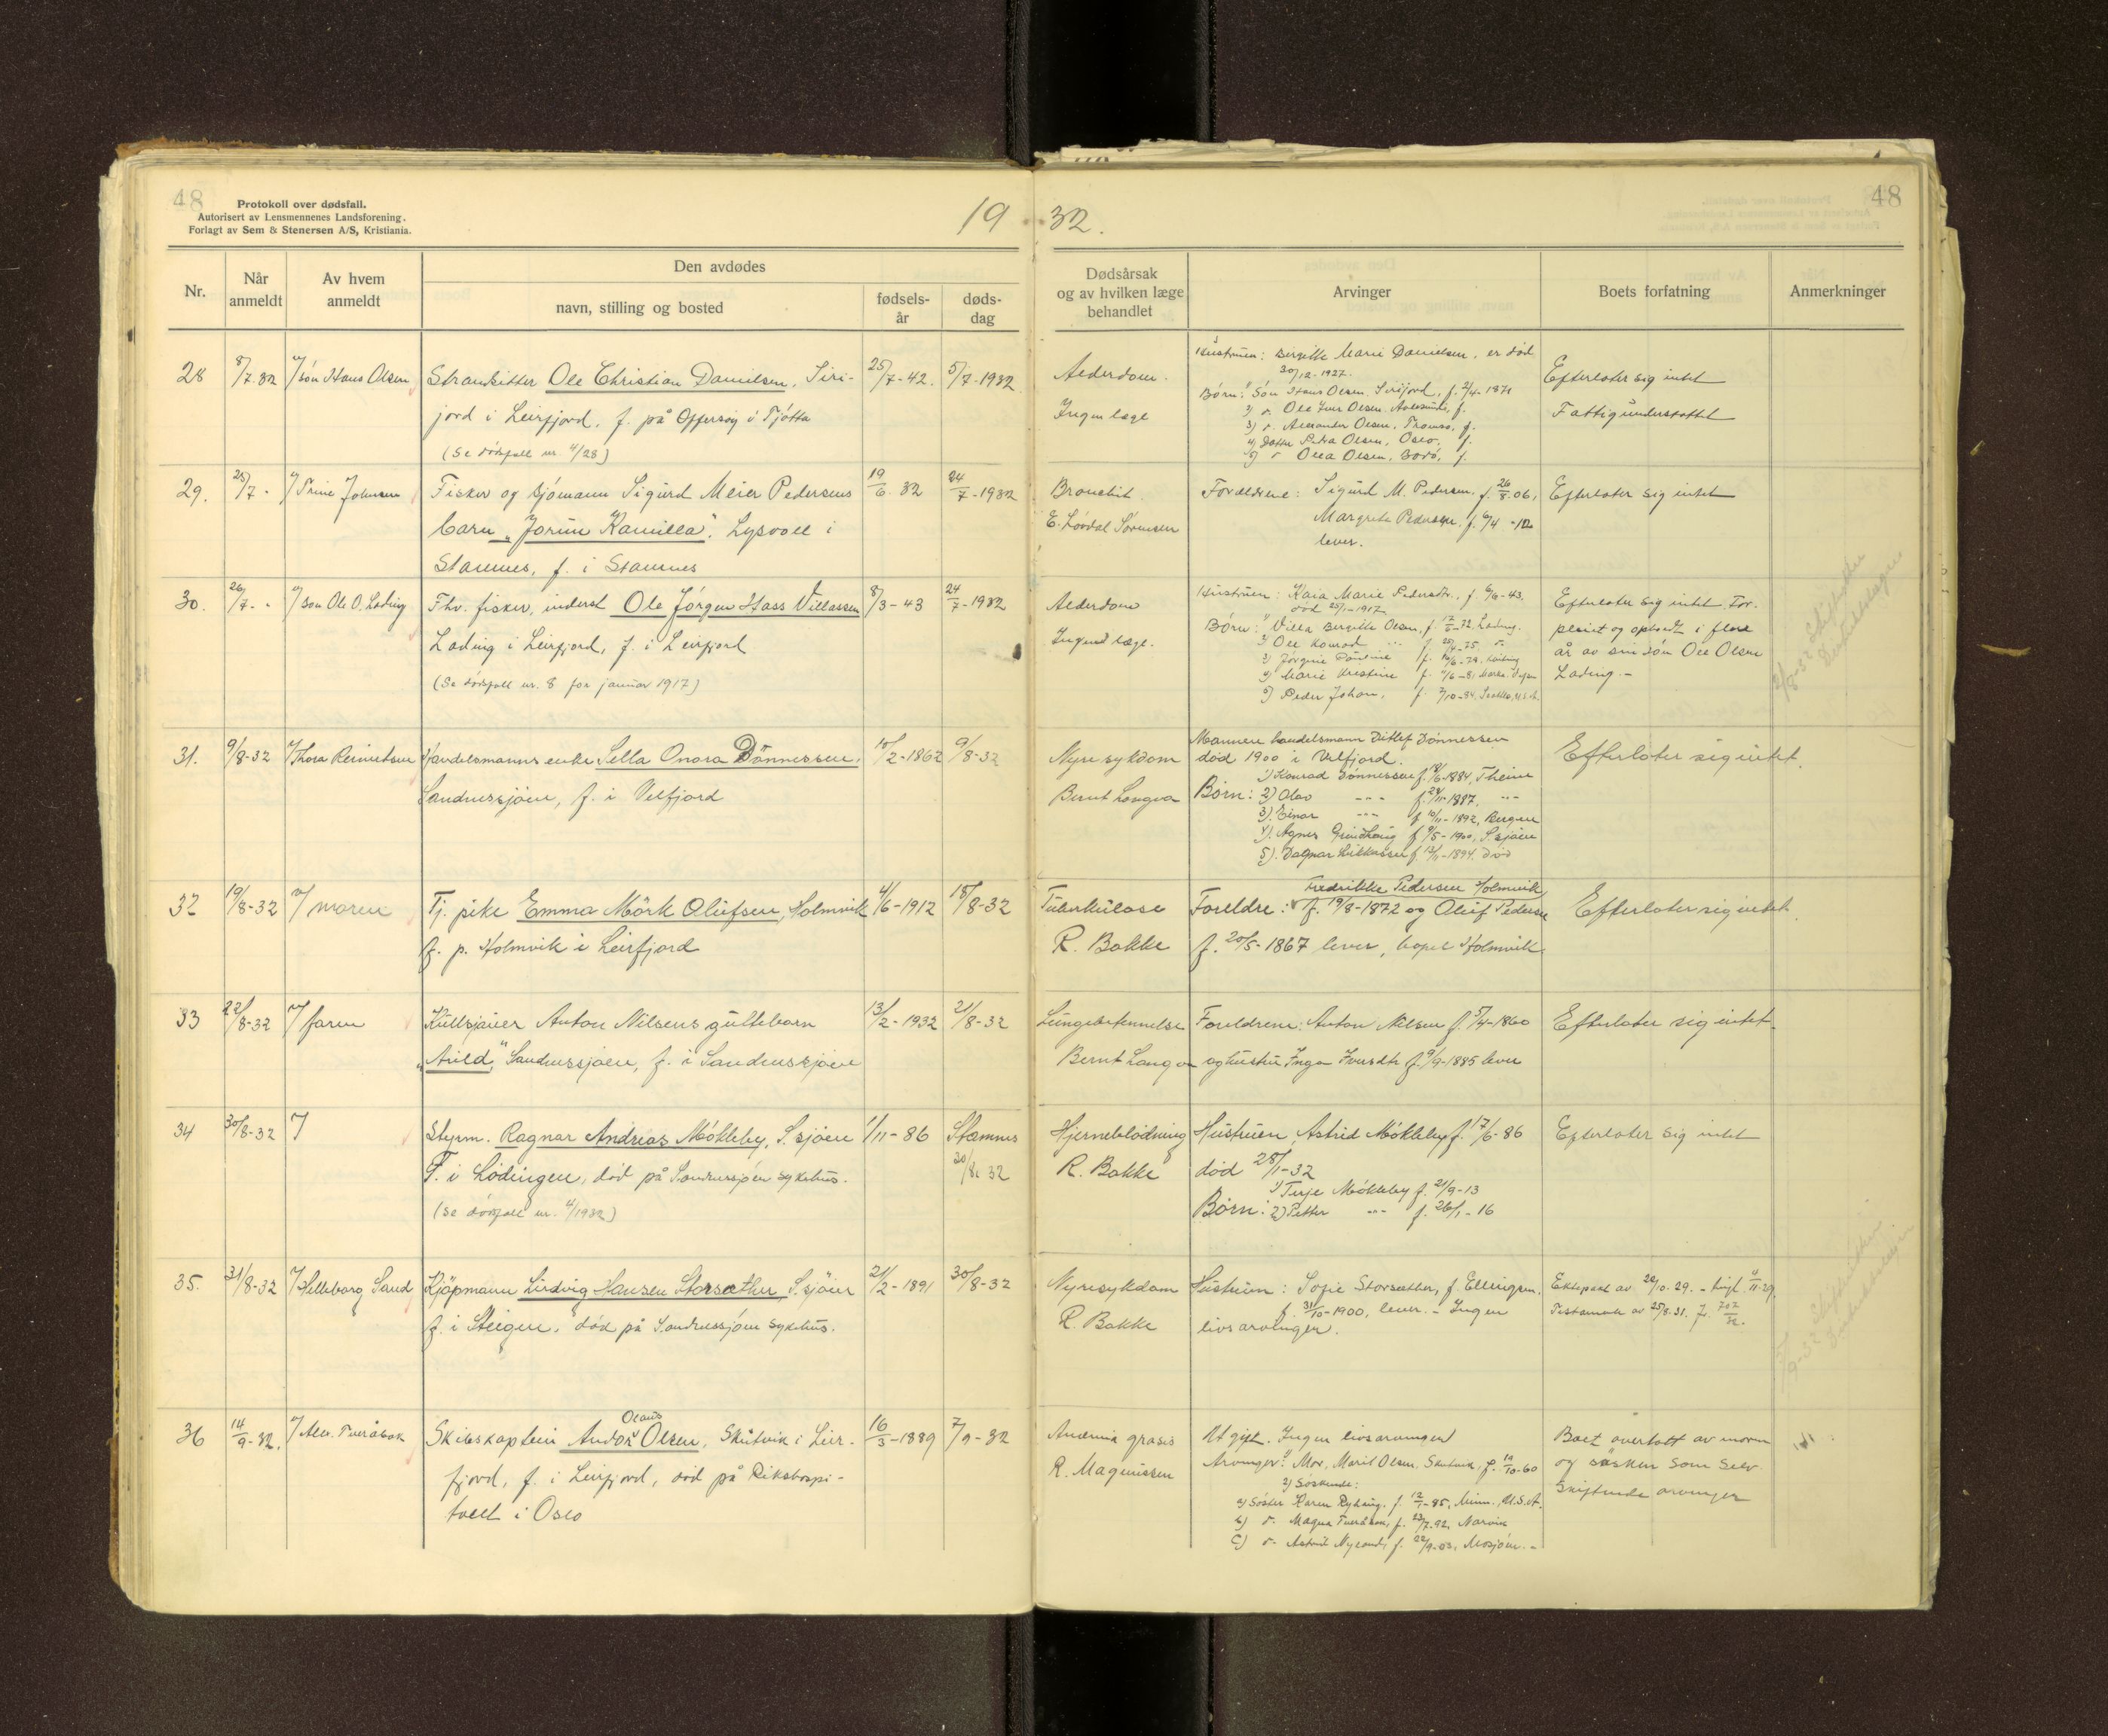 48
Protokoll over dødsfall.
Autorisert av Lensmennenes Landsforening.
Forlagt av Sem & Stenersen A/S, Kristiania.
19 32.
48
Nr.
Når anmeldt
Av hvem anmeldt
Den avdødes
navn, stilling og bosted
fødsels-år
døds-dag
Dødsårsak og av hvilken læge behandlet
Arvinger
Boets forfatning
Anmerkninger
28 8/7.32 v/ søn Hans Olsen
Strandsitter Ole Christian Danielsen, Siri-
jord i Leirfjord, f. på Offersøy i Tjøtta
(Se dødsfall nr. 4/28)
25/7-42. 5/7-1932
Alderdom.
Ingen læge
Hustruen: Birgitte Marie Danielsen, er død
30/12-1927.
Børn: 1) Søn Hans Olsen, Sirijord, f. 2/4-1871
2) d. Ole Iver Olsen, f.
3) d. Alexander Olsen, Tromsø, f.
4) Datter Petra Olsen, Oslo, f.
5) d Olea Olsen, Bodø, f.
Efterlater sig intet
Fattigunderstøttet
29. 25/7 - v/ Trine Johnsen
Fisker og sjømann Sigurd Meier Pedersens
barn "Jorun Kamilla", Lysvoll i
Stamnes, f. i Stamnes
19/6.32 24/7-1932
Bronchit.
E. Løvdal Sørensen
Forældrene: Sigurd M. Pedersen, f. 26/8.06,
Margrete Pedersen, f. 6/4-12
lever.
Efterlater sig intet
30. 26/7 - - v/ søn Ole O. Lading
Fhv. fisker, inderst Ole Jørgen Hass Villassen
Lading i Leirfjord, f. i Leirfjord
(Se dødsfall nr. 8 for januar 1917)
8/3-43 24/7-1932
Alderdom
Ingen læge.
Hustruen: Kaia Marie Pedersdtr., f. 6/6-43.
død 25/1-1917
Børn: 1) Villa Bergitte Olsen, f. 17/5-72, Lading.
2) Ole Konrad f. 25/4-75
3) Jørgine f. 10/6-78
4) Marie Kristine f. 1/6-81
5) Peder Johan, f. 7/10-84, Seattle, U.S.A.
Efterlater sig intet. For-
pleiet og opholdt i flere
år av sin søn Ole Olsen
Lading.-
31. 9/8-32 v/ Thora Reinertsen
Handelsmanns enke Sella Onora Dønnessen,
Sandnessjøen, f. i Velfjord
10/2-1862 9/8-32
Nyresykdom
Bernt Langva
Mannen handelsmann Ditlef Dønnessen
død 1900 i Velfjord.
1) Konrad Dønnessen f. 18/6-1884,
Børn: 2) Olav -"- f. 24/11-1887, -"-
3). Einar -"- f. 10/11-1892, Bergen
4). Agnes Grindhaug f. 9/5-1900, S.sjøen
5). Dagmar f. 13/11-1894. død
Efterlater sig intet.
32 19/8-32 v/ moren
Tj. pike Emma Mörk Olufsen, Holmvik
f. p. Holmvik i Leirfjord
4/6-1912 18/8-32
Tuberkulose
R. Bakke
Fredrikke Pedersen Holmvik
Foreldre: f. 19/8-1872 og Oluf Pedersen
f. 20/5-1867 lever, bopel Holmvik.
Efterlater sig intet.
33 22/8-32 v/ faren
Kullsjauer Anton Nilsens guttebarn
"Arild," Sandnessjøen, f. i Sandnessjøen
13/2-1932 21/8-32
Lungebetennelse
Bernt Langva
Foreldrene: Anton Nilsen f. 5/4-1860
og hustru Inga Iversdtr f. 9/9-1885 lever
Efterlater sig intet.
34 30/8-32 v/
Styrm. Ragnar Andreas Møkleby, S.sjøen
F. i Lødingen, død på Sandnessjøen sykehus.
(Se dødsfall nr. 4/1932)
1/11-86 Stamnes
30/8.32
Hjerneblødning
R. Bakke
Hustruen, Astrid Møkleby f. 17/6-86
død 28/1-32
1) Terje Møkleby f. 21/9-13
Børn: 2) Petter -"- f. 26/1-16
Efterlater sig intet
35. 31/8-32 v/ Helleborg Sund
Kjøpmann Ludvig Hansen Storsæther, S.sjøen
f. i Steigen, død på Sandnessjøen sykehus.
21/2-1891 30/8-32
Nyresykdom
R. Bakke
Hustruen: Sofie Storsæther, f. Ellingsen,
f. 31/10-1900, lever.- Ingen
livsarvinger.
Ektepakt av 28/10.29. - tingl. 11/11-29.
Testamente av 25/8.31. J. 702/32.
36 14/9-32. v/ Alv. Tveråbak
Olaus
Skibskaptein Andor Olsen, Skutvik i Leir-
fjord, f. i Leirfjord, død på Rikshospi-
talet i Oslo
16/3-1889 7/9-32
Anæmia gravis
R. Magnussen
Ugift. Ingen livsarvinger
Arvinger: 1) Mor, Maril Olsen, Skutvik, f. 10/10-60
2) Søskende:
a) Søster Karen Ryhaug, f. 12/1-85, Minn., U.S.A.
b) d- Magna Tveråbak, f. 23/7.92, Narvik
c) d- Astrid Nylund, f. 22/9-03, Mosjøen.-
Boet overtatt av moren
og søsken som selv-
skiftende arvinger